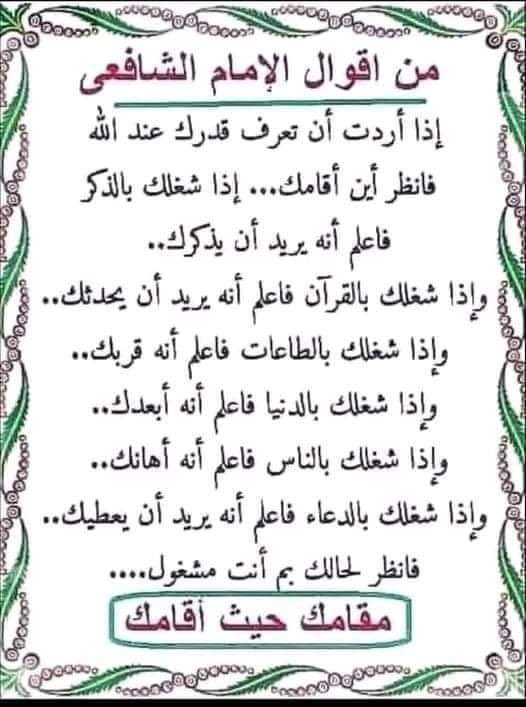 من اقوال الإمام الشافعى
إذا أردت أن تعرف قدرك عند الله
فانظر أين أقامك... إذا شغلك بالذكر
فاعلم أنه يريد أن يذكرك..
وإذا شغلك بالقرآن فاعلم أنه يريد أن يحدثك..
وإذا شغلك بالطاعات فاعلم أنه قربك..
وإذا شغلك بالدنيا فاعلم أنه أبعدك..
وإذا شغلك بالناس فاعلم أنه أهانك..
وإذا شغلك بالدعاء فاعلم أنه يريد أن يعطيك..
فانظر لحالك بم أنت مشغول....
مقامك حيث أقامك